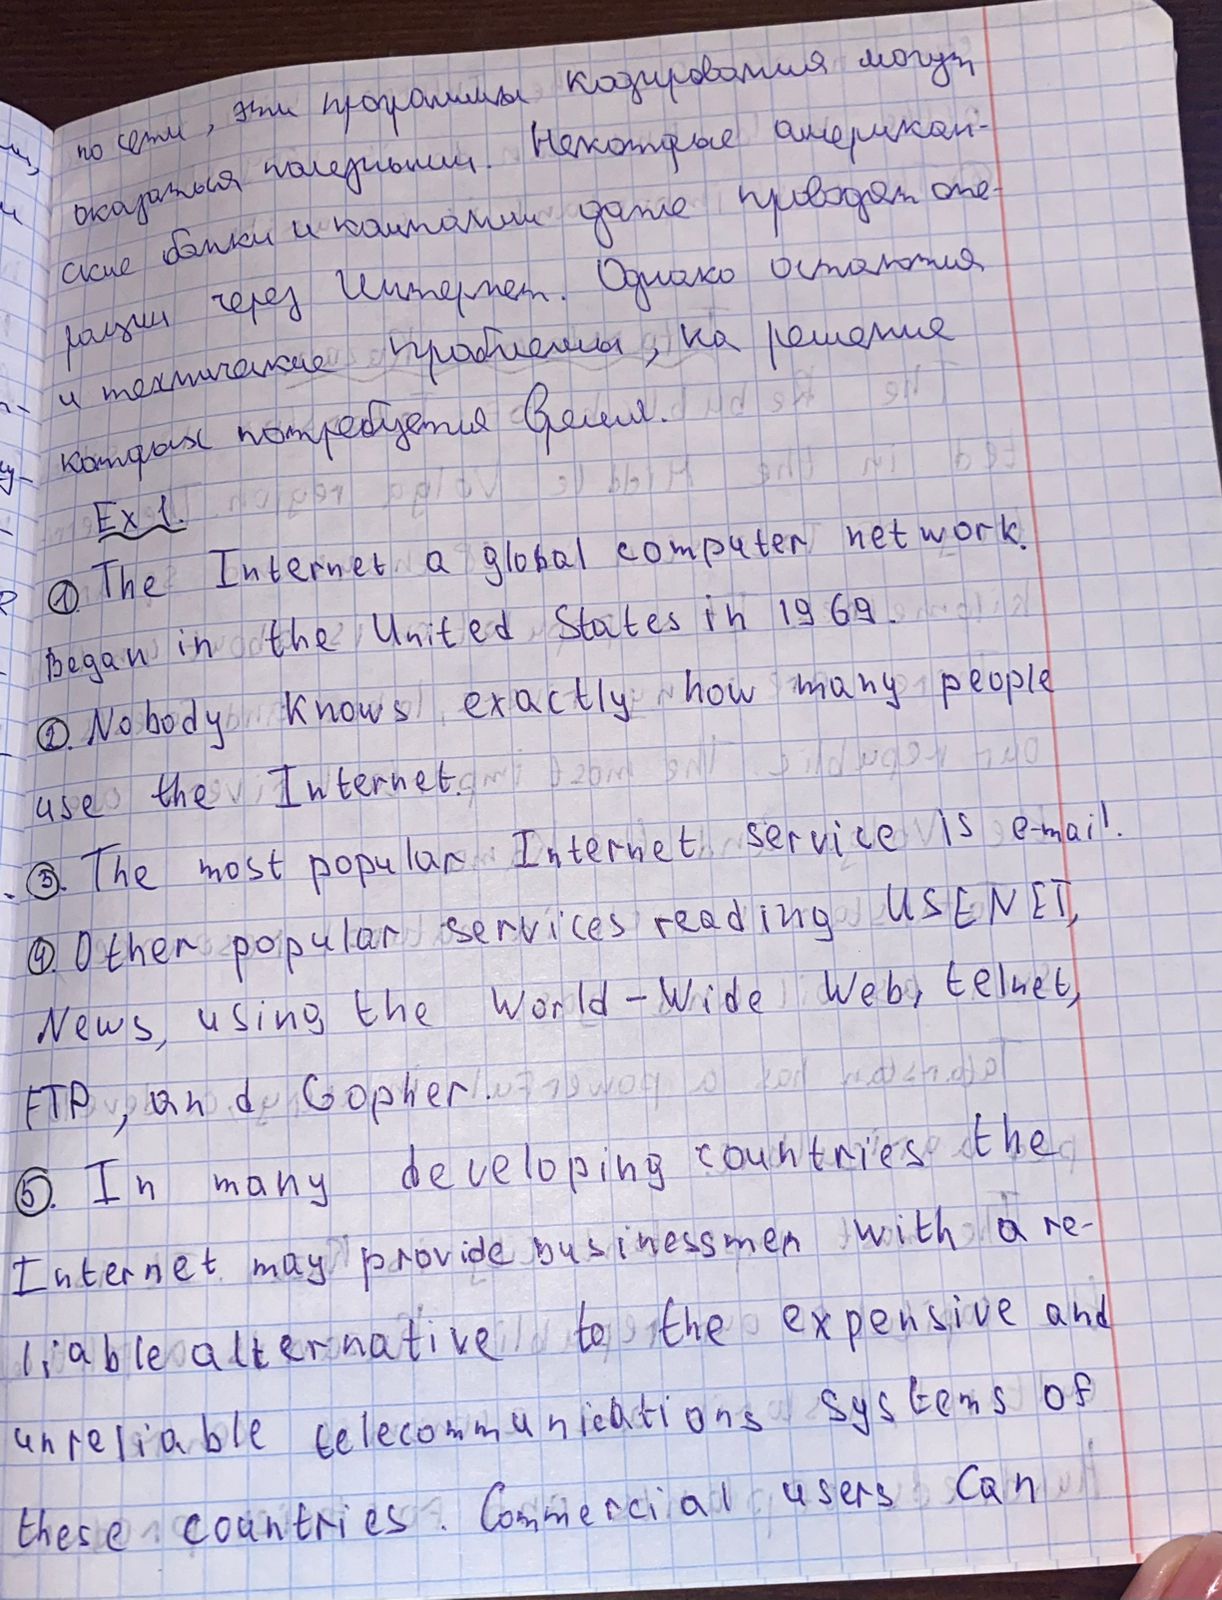 по сети, эти программы кодирования могут
оказаться полезными. Некоторые американ-
ские банки и компании даже проводят опе-
рации через Интернет. Однако остаются
и технические проблемы, на решение
которых потребуется время.
Ex 1.
1. The Internet a global computer network.
Began in the United States in 1969.
2. Nobody knows exactly how many people
use the Internet.
3. The most popular Internet service is e-mail.
4. Other popular services reading USENET,
News, using the World-Wide Web, telnet,
FTP, and Gopher.
5. In many developing countries the
Internet may provide businessmen with a re-
liable alternative to the expensive and
unreliable telecommunications systems of
these countries. Commercial users can